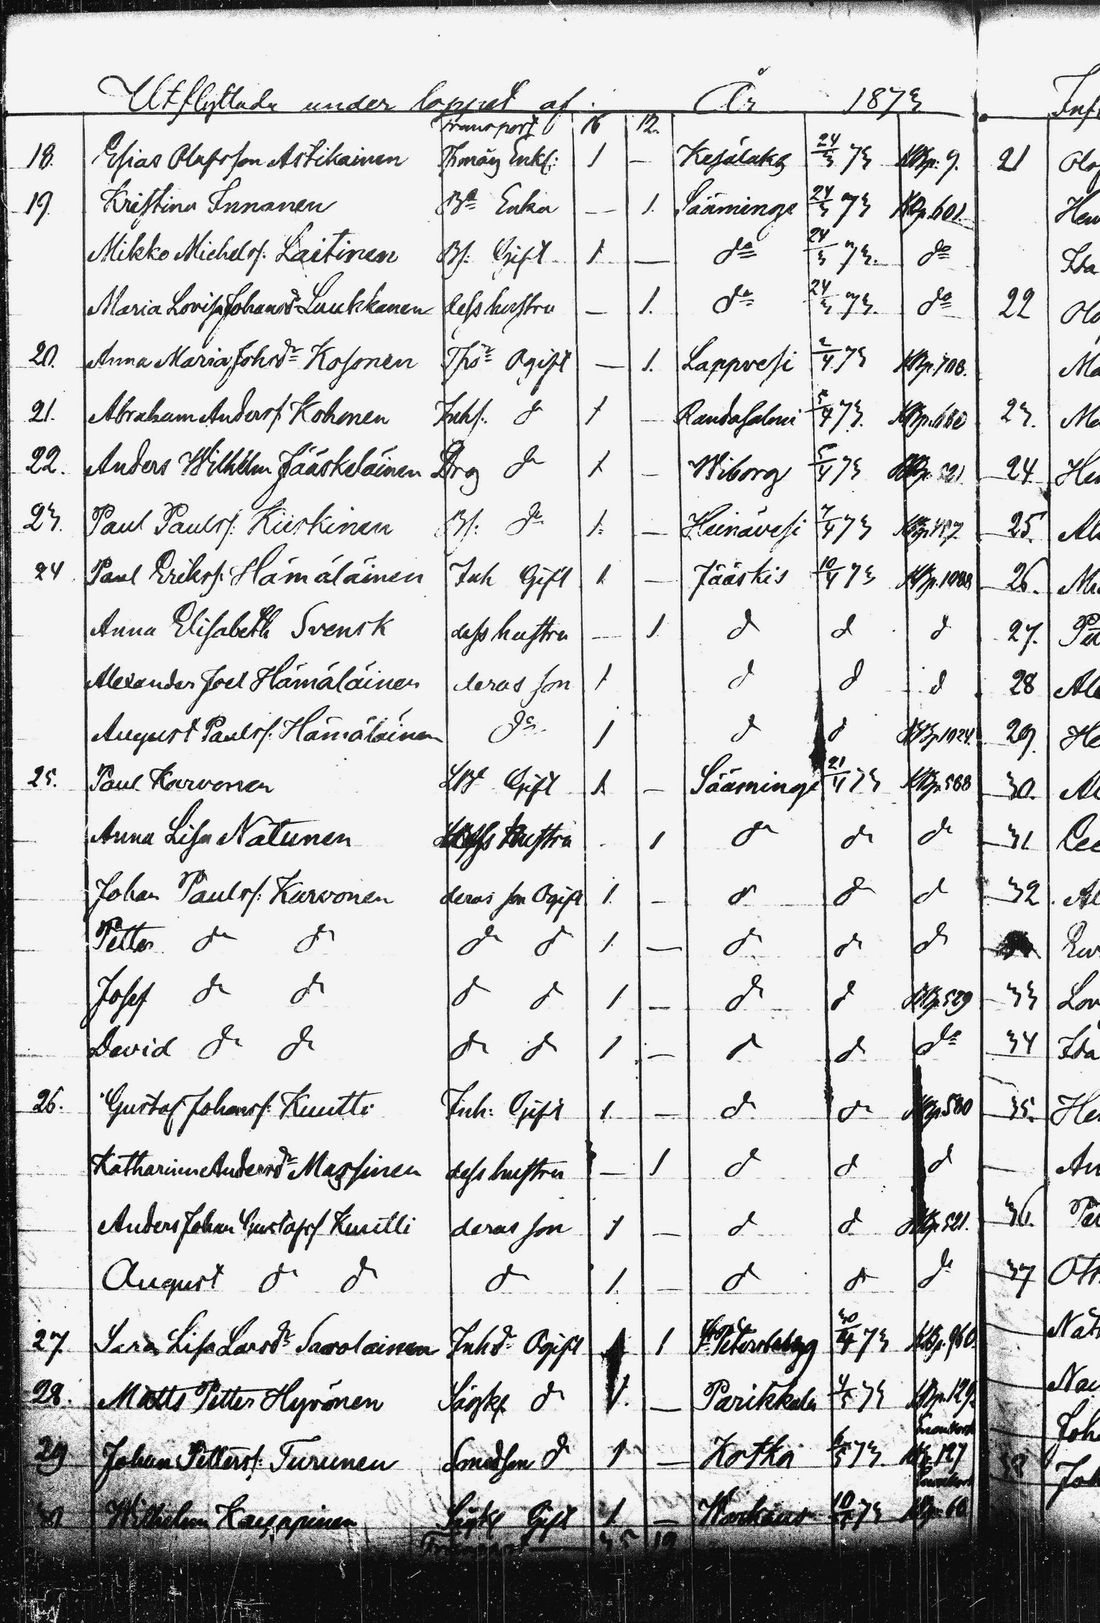 Utflyttade under loppet af År 1873
Transport 16 12.
18. Esias Olofsson Astikainen Enkl: 1 — Kesälaks 24/3 73 KBp. 9. 21
19. Kristina Innanen Bda Enka — 1. Sääminge 24/3 73 KBp. 601. Hen
Mikko Michelss. Laitinen Bs. Gift 1 — do 24/3 73. do Ida
Maria Lovisa Johansdr Luukkanen dess hustru — 1. do 24/3 73. do 22
20. Anna Maria Johsdr Kosonen Ogift — 1. Lappvesi 2/4 73 KBp. 708. Ma
21. Abraham Anderss. Kohonen Inhs. d 1 — Randasalmi 5/4 73. 23. Ma
22. Anders Wilhelm Jääskeläinen Drg do 1 — Wiborg 5/4 73 KBp. 521. 24. Hen
23. Paul Paulss. Kiiskinen Bs. do 1. — Heinävesi 7/4 73 KBp. 457 25. Al
24 Paul Erikss. Hämäläinen Inh Gift 1. — Jääskis 10/4 73 26.
Anna Elisabeth Svensk dess hustru — 1. d d d 27. Pet
Alexander Joel Hämäläinen deras son 1 d d d 28 Al
August Paulss. Hämäläinen do 1 d d KBp. 1024 29. He
25. Paul Karvonen Gift 1. — Sääminge 21/4 73 KBp. 588 30. Al
Anna Lisa Natunen dess hustru 1 do d d 31
Johan Paulss. Karvonen deras son Ogift 1. — d d d 32. Al
Petter do do d d 1. — d d d
Josef d d d d 1 — d d KBp. 529 33 Lov
David d d d d 1 — d d do 34 Ida
26. Gustaf Johanss. Kuutti Inh: Gift 1. — d d KBp. 580 35. Hen
Katharina Andersdr Massinen dess hustru — 1 d d d An
Anders Johan Gustafss. Kuutti deras son 1 — d d KBp. 521. 36.
August d d d 1. — d d d 37 Ots
27. Sara Lisa Larsdr Savolainen Inhdr Ogift 1 St Petersburg 30/4 73 KBp. 960
28. Matts Petter Hyvönen d 1. — Parikkala 4/5 73 KBp. 129.
29 Johan Petterss. Turunen d 1 — Kotka 73 127 Joh
30 Wilhelm Gift 1 — Warkaus 73
Transport 35 19